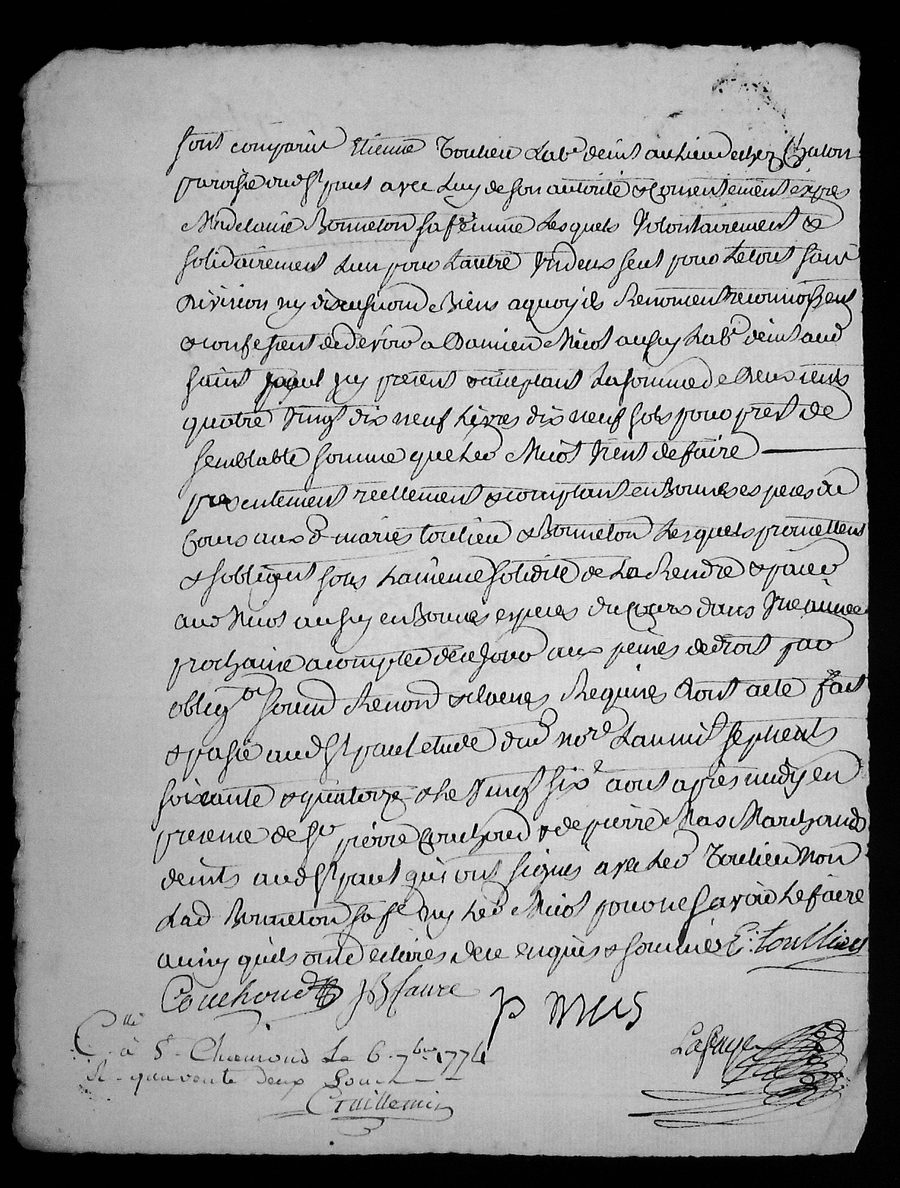 sont comparus Etienne Toulieu Labr. deint au lieu de chez Chalon
paroisse dud st paul avec luy de son autorité & consentement expres
Madelaine Bonneton sa femme Lesquels volontairement &
solidairement Lun pour Lautre Un deux seul pour Letout sans
division ny discusiond de Biens a quoy ils Renoncent reconnoissent
& confessent de devoir a Damien Nicot aussy Labr. deint aud
saint paul icy present & aceptant La somme de Deux cents
quatre vingt dix neuf Livres dix neuf sols pour prest de
semblable somme que Led Nicot vient de faire
presentement reellement & comptant en Bonnes especes de
Cours auxd. mariés toulieu & Bonneton Lesquels promettent
& sobligent sous La meme solidité de La Rendre & paier
aud Nicot aussy en Bonnes especes du Cours dans Une année
prochaine acompter de ce Jour aux peines de droit par
obligon. soumd Renond & clauses Requises Dont acte fait
& passé aud st paul etude dud nore. Lan mil sept cents
soixante & quatorze & Le vingt six aout apres midy en
presence de sr pierre Couchoud & de pierre Mas Marchands
deints aud st paul qui ont signés avec Led Toulieu non
Lad Bonneton sa fe. ny Led Nicot pour ne savoir Le faire
ainsy quils ont declarés de ce enquis & sommés E: toullieu
Couchoud JB faure p mas
Lafaye
Clle
à St Chamond Le 6 7bre 1774
R. quarente deux sous
Guillemin